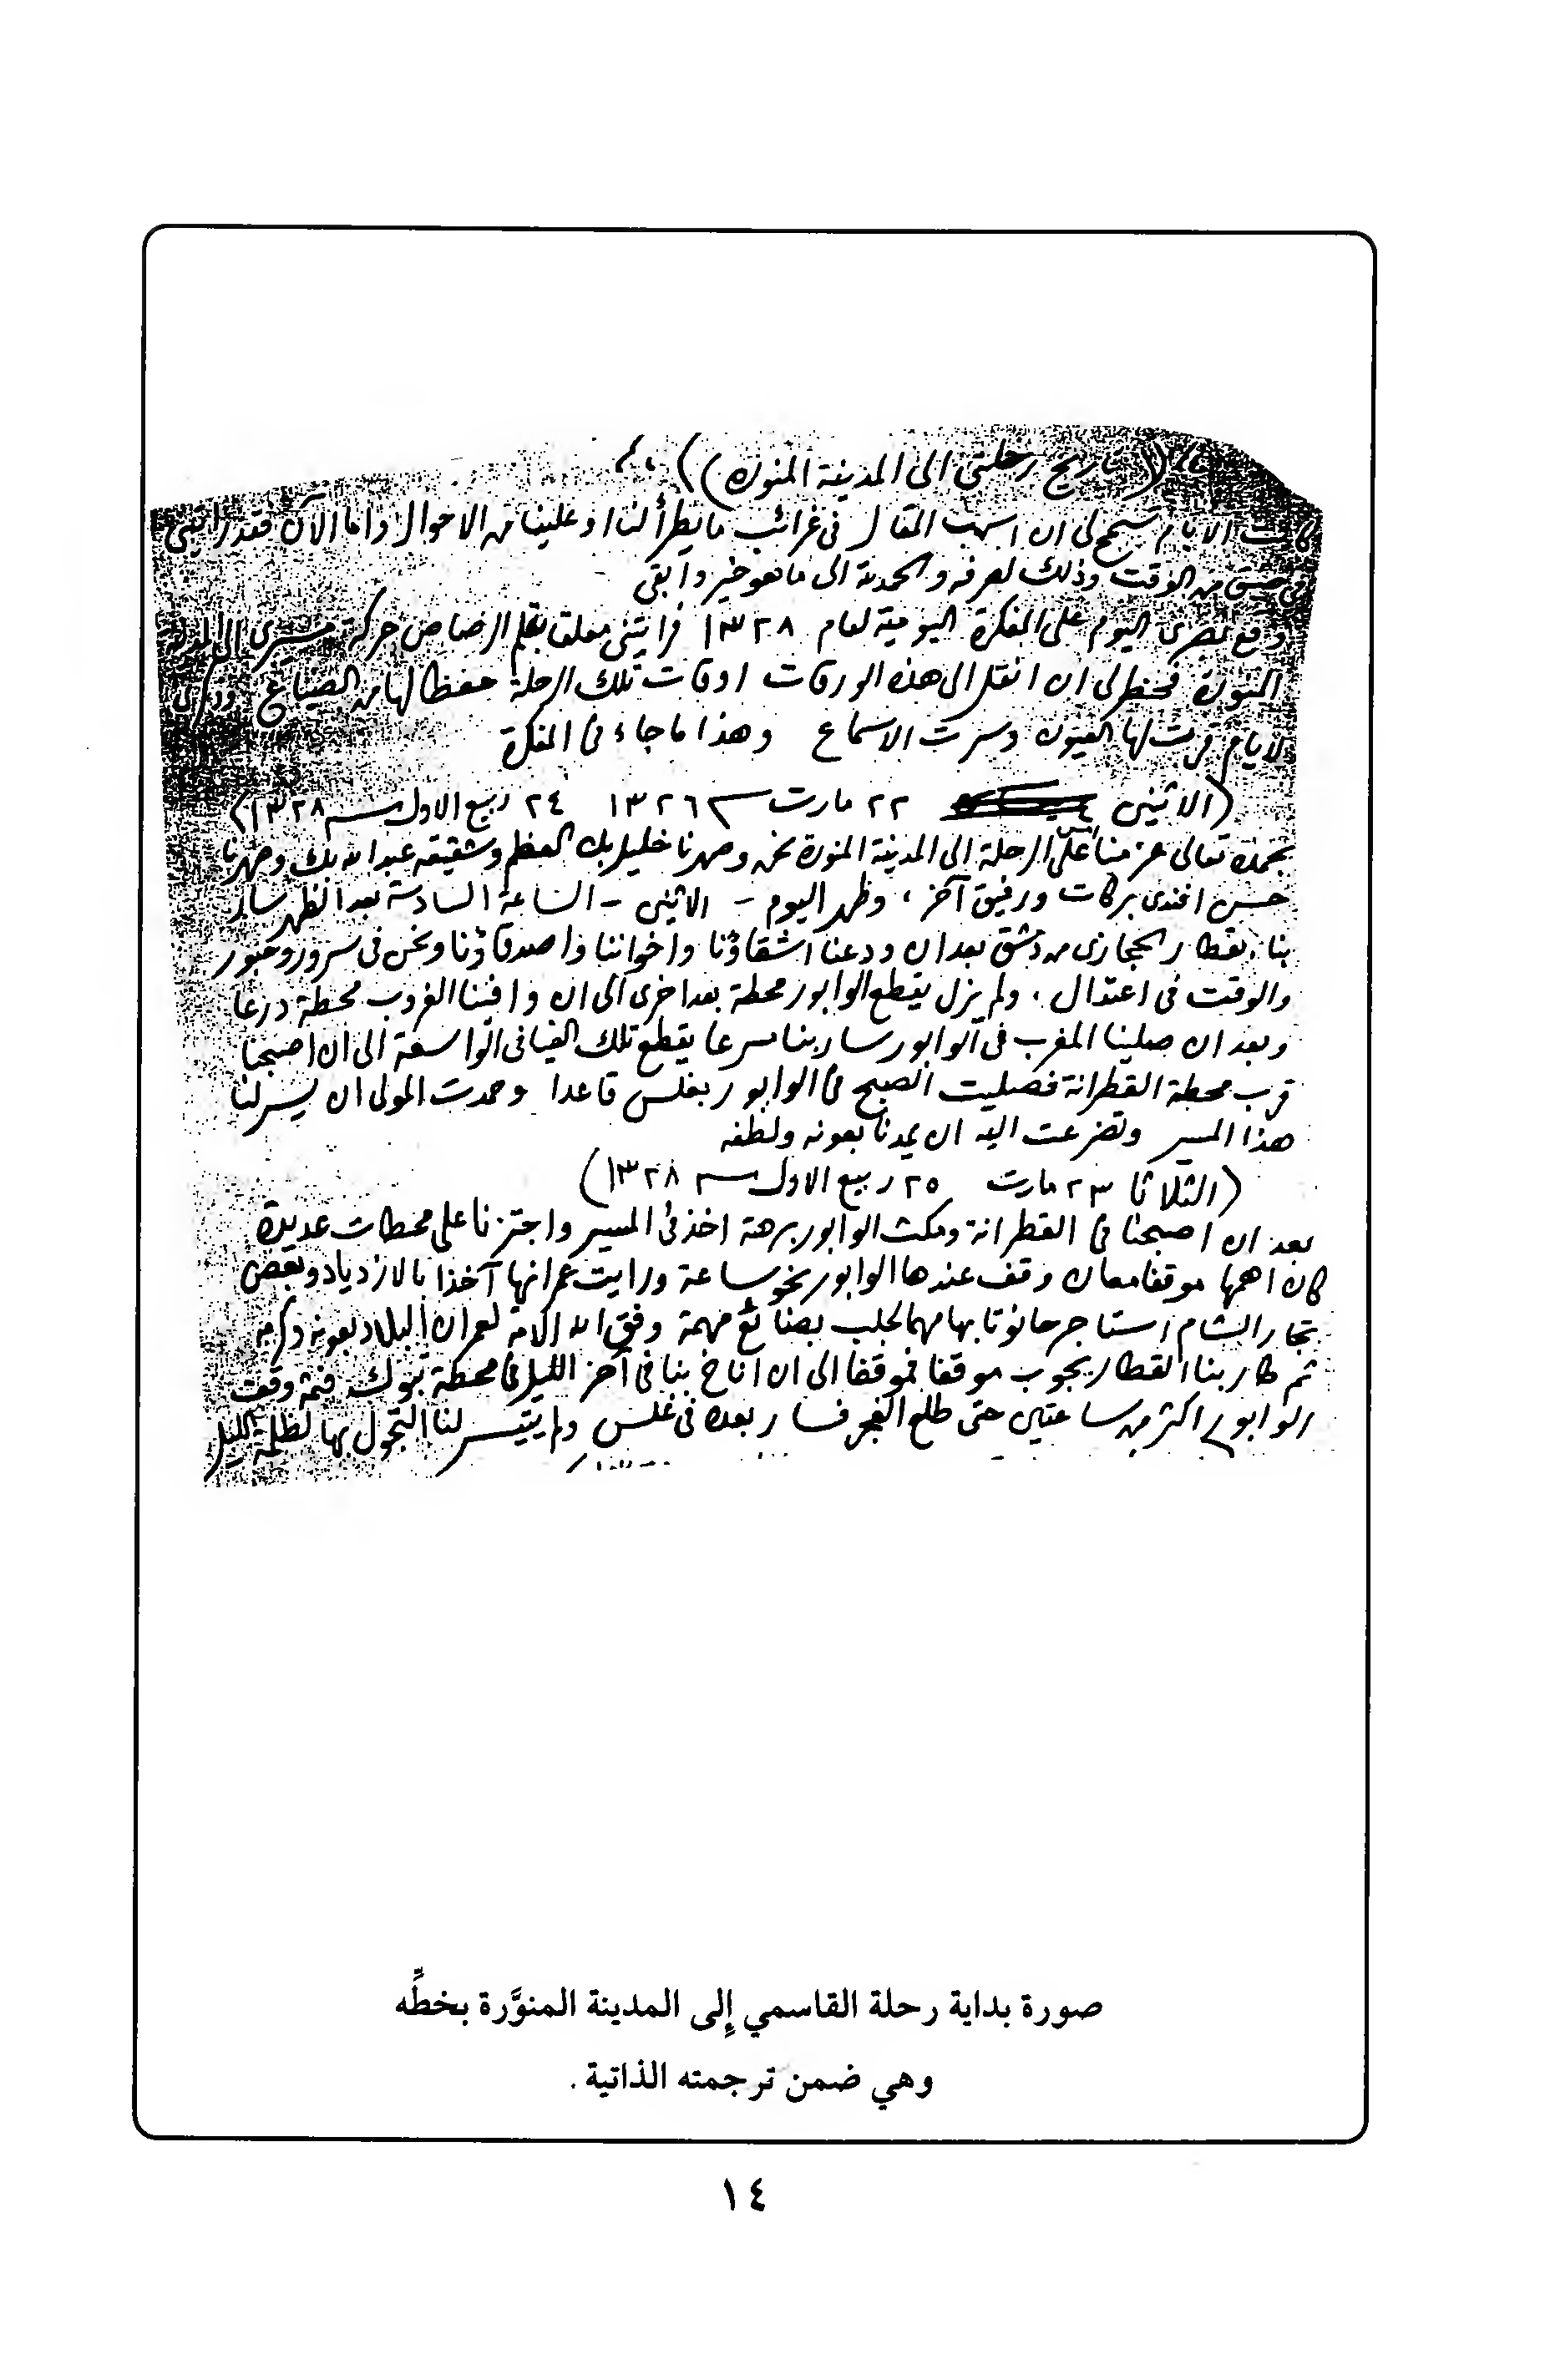 ((تاريخ رحلتي الى المدينة المنورة))
كانت الايام تسمح لى ان اسهب المقال فى غرائب ما يطرأ لنا او علينا من الاحوال واما الآن فقد رأيتنى
فى ضيق من الوقت وذلك لصرفه والحمد لله الى ما هو خير وابقى
وقع بصرى اليوم على المفكرة اليومية لعام ١٣٢٨ فرايتنى معلق بقلم الرصاص حركة مسيرى الى المدينة
المنورة فخطر لى ان انقل الى هذه الورقات اوقات تلك الرحلة حفظا لها من الضياع وذكرى
لايام قرت لها العيون وسرت الاسماع وهذا ما جاء فى المفكرة
(الاثنين ٢٢ مارت سنة ١٣٢٦ ٢٤ ربيع الاول سنة ١٣٢٨)
بحمده تعالى عزمنا امس على الرحلة الى المدينة المنورة نحن وصهرنا خليل بك العظم وشقيقه عبد الله بك وصهرنا
حسن افندى بركات ورفيق آخر، وظهر اليوم - الاثنين - الساعة السادسة بعد الظهر سار
بنا القطار الحجازى من دمشق بعد ان ودعنا اشقاؤنا واخواننا واصدقاؤنا ونحن فى سرور وحبور
والوقت فى اعتدال، ولم يزل يقطع الوابور محطة بعد اخرى الى ان وافينا الغروب محطة درعا
وبعد ان صلينا المغرب فى الوابور سار بنا مسرعا يقطع تلك الفيافى الواسعة الى ان اصبحنا
قرب محطة القطرانة فصليت الصبح فى الوابور بغلس قاعدا وحمدت المولى ان يسر لنا
هذا المسير وتضرعت اليه ان يمدنا بعونه ولطفه
(الثلاثا ٢٣ مارت ٢٥ ربيع الاول سنة ١٣٢٨)
بعد ان اصبحنا فى القطرانة ومكث الوابور برهة اخذ فى المسير واجتزنا على محطات عديدة
كان اهمها موقفا معان وقف عندها الوابور نحو ساعة ورايت عمرانها آخذا بالازدياد وبعض
تجار الشام استاجر حانوتا بها مهما لجلب بضائع مهمة وفق الله الامة لعمران البلاد بعونه وكرمه
ثم طار بنا القطار يجوب موقفا فموقفا الى ان اناخ بنا فى آخر الليل فى محطة تبوك فثمة وقف
الوابور اكثر من ساعتين حتى طلع الفجر فسار بعده فى غلس ولم يتيسر لنا التجول بها لظلمة الليل
صورة بداية رحلة القاسمي إِلى المدينة المنوَّرة بخطِّه
وهي ضمن ترجمته الذاتية .
١٤